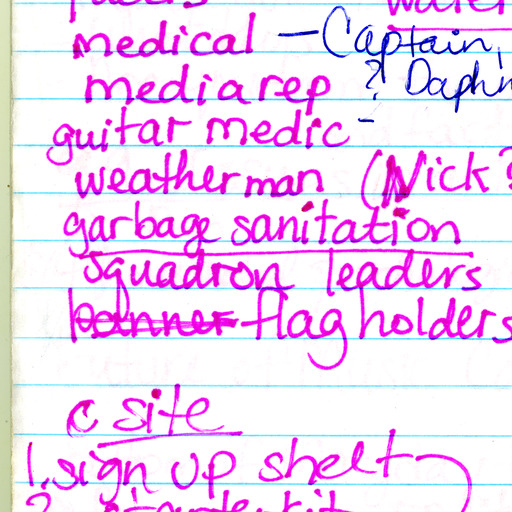 medical - Captain,
media rep ? Daphn
guitar medic -
weatherman (Nick?
garbage sanitation
squadron leaders
banner flag holders
C site
1. sign up shelt
2.